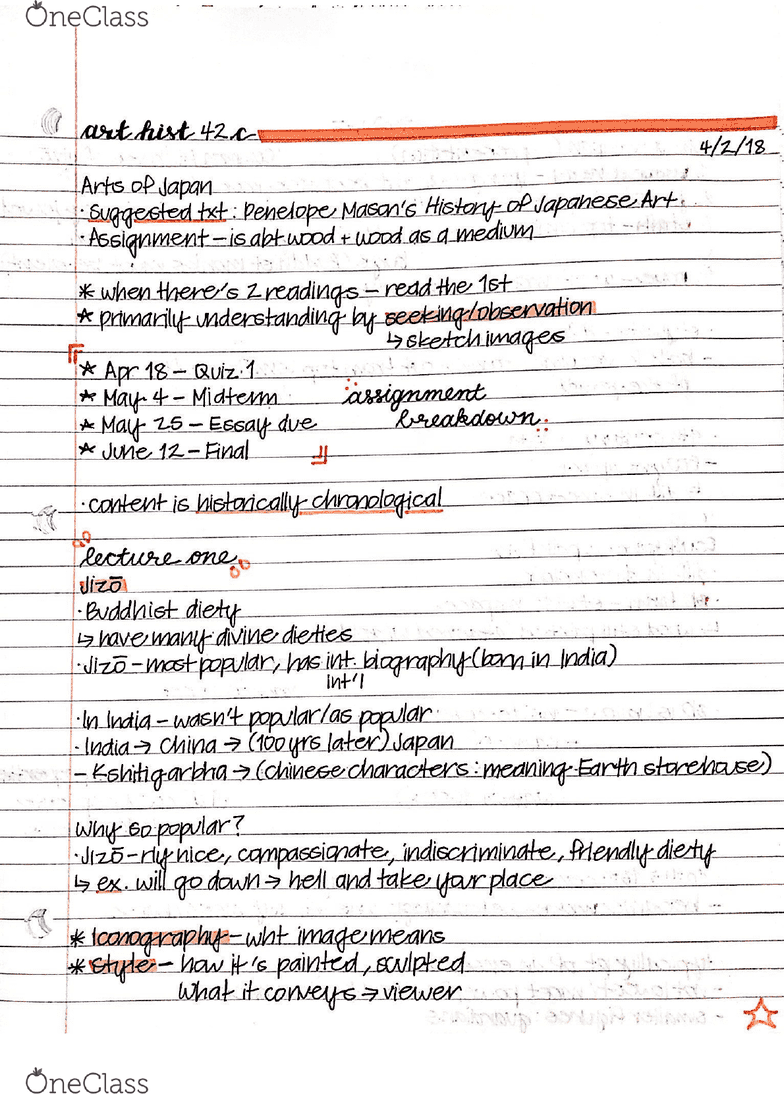 OneClass
art hist 42c
4/2/18
Arts of Japan
· Suggested txt: Penelope Mason's History of Japanese Art.
· Assignment – is abt wood + wood as a medium
* when there's 2 readings – read the 1st
* primarily understanding by seeking/observation
↳ sketch images
* Apr 18 – Quiz 1
* May 4 – Midterm
assignment
* May 25 – Essay due
breakdown
* June 12 – Final
· content is historically chronological
lecture one
Jizō
· Buddhist diety
↳ have many divine dieties
· Jizō – most popular, has int. biography (born in India)
int'l
· In India – wasn't popular/as popular
· India → China → (100 yrs later) Japan
– Kshitigarbha → (chinese characters: meaning Earth storehouse)
Why so popular?
· Jizō – rly nice, compassionate, indiscriminate, friendly diety
↳ ex. will go down → hell and take your place
* Iconography – wht image means
* Style – how it's painted, sculpted
what it conveys → viewer
OneClass